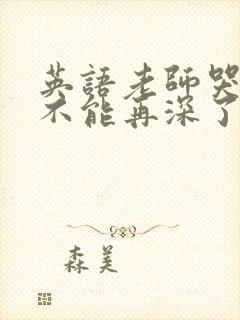 英語老師哭
不能再深了
森美